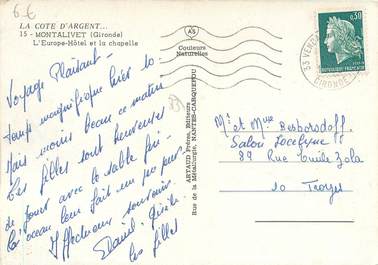 6-€
LA COTE D'ARGENT...
15 - MONTALIVET (Gironde)
L'Europe-Hôtel et la chapelle
AS
Couleurs
Naturelles
0,30
REPUBLIQUE FRANÇAISE
33 VEN
GIRONDE
Voyage Plaisant -
temps magnifique hier 10
Mais moins beau ce matin
Les filles sont heureuses
de jouer avec le sable
l'océan leur fait un peu peur
Affectueux souvenir
Daniel Gisèle
les filles
33
ARTAUD Frères, Éditeurs
Rue de la Métallurgie, NANTES-CARQUEFOU
Mr et Mme Desborsdoff
Salon Jocelyne
89 Rue Emile Zola
10 Troyes